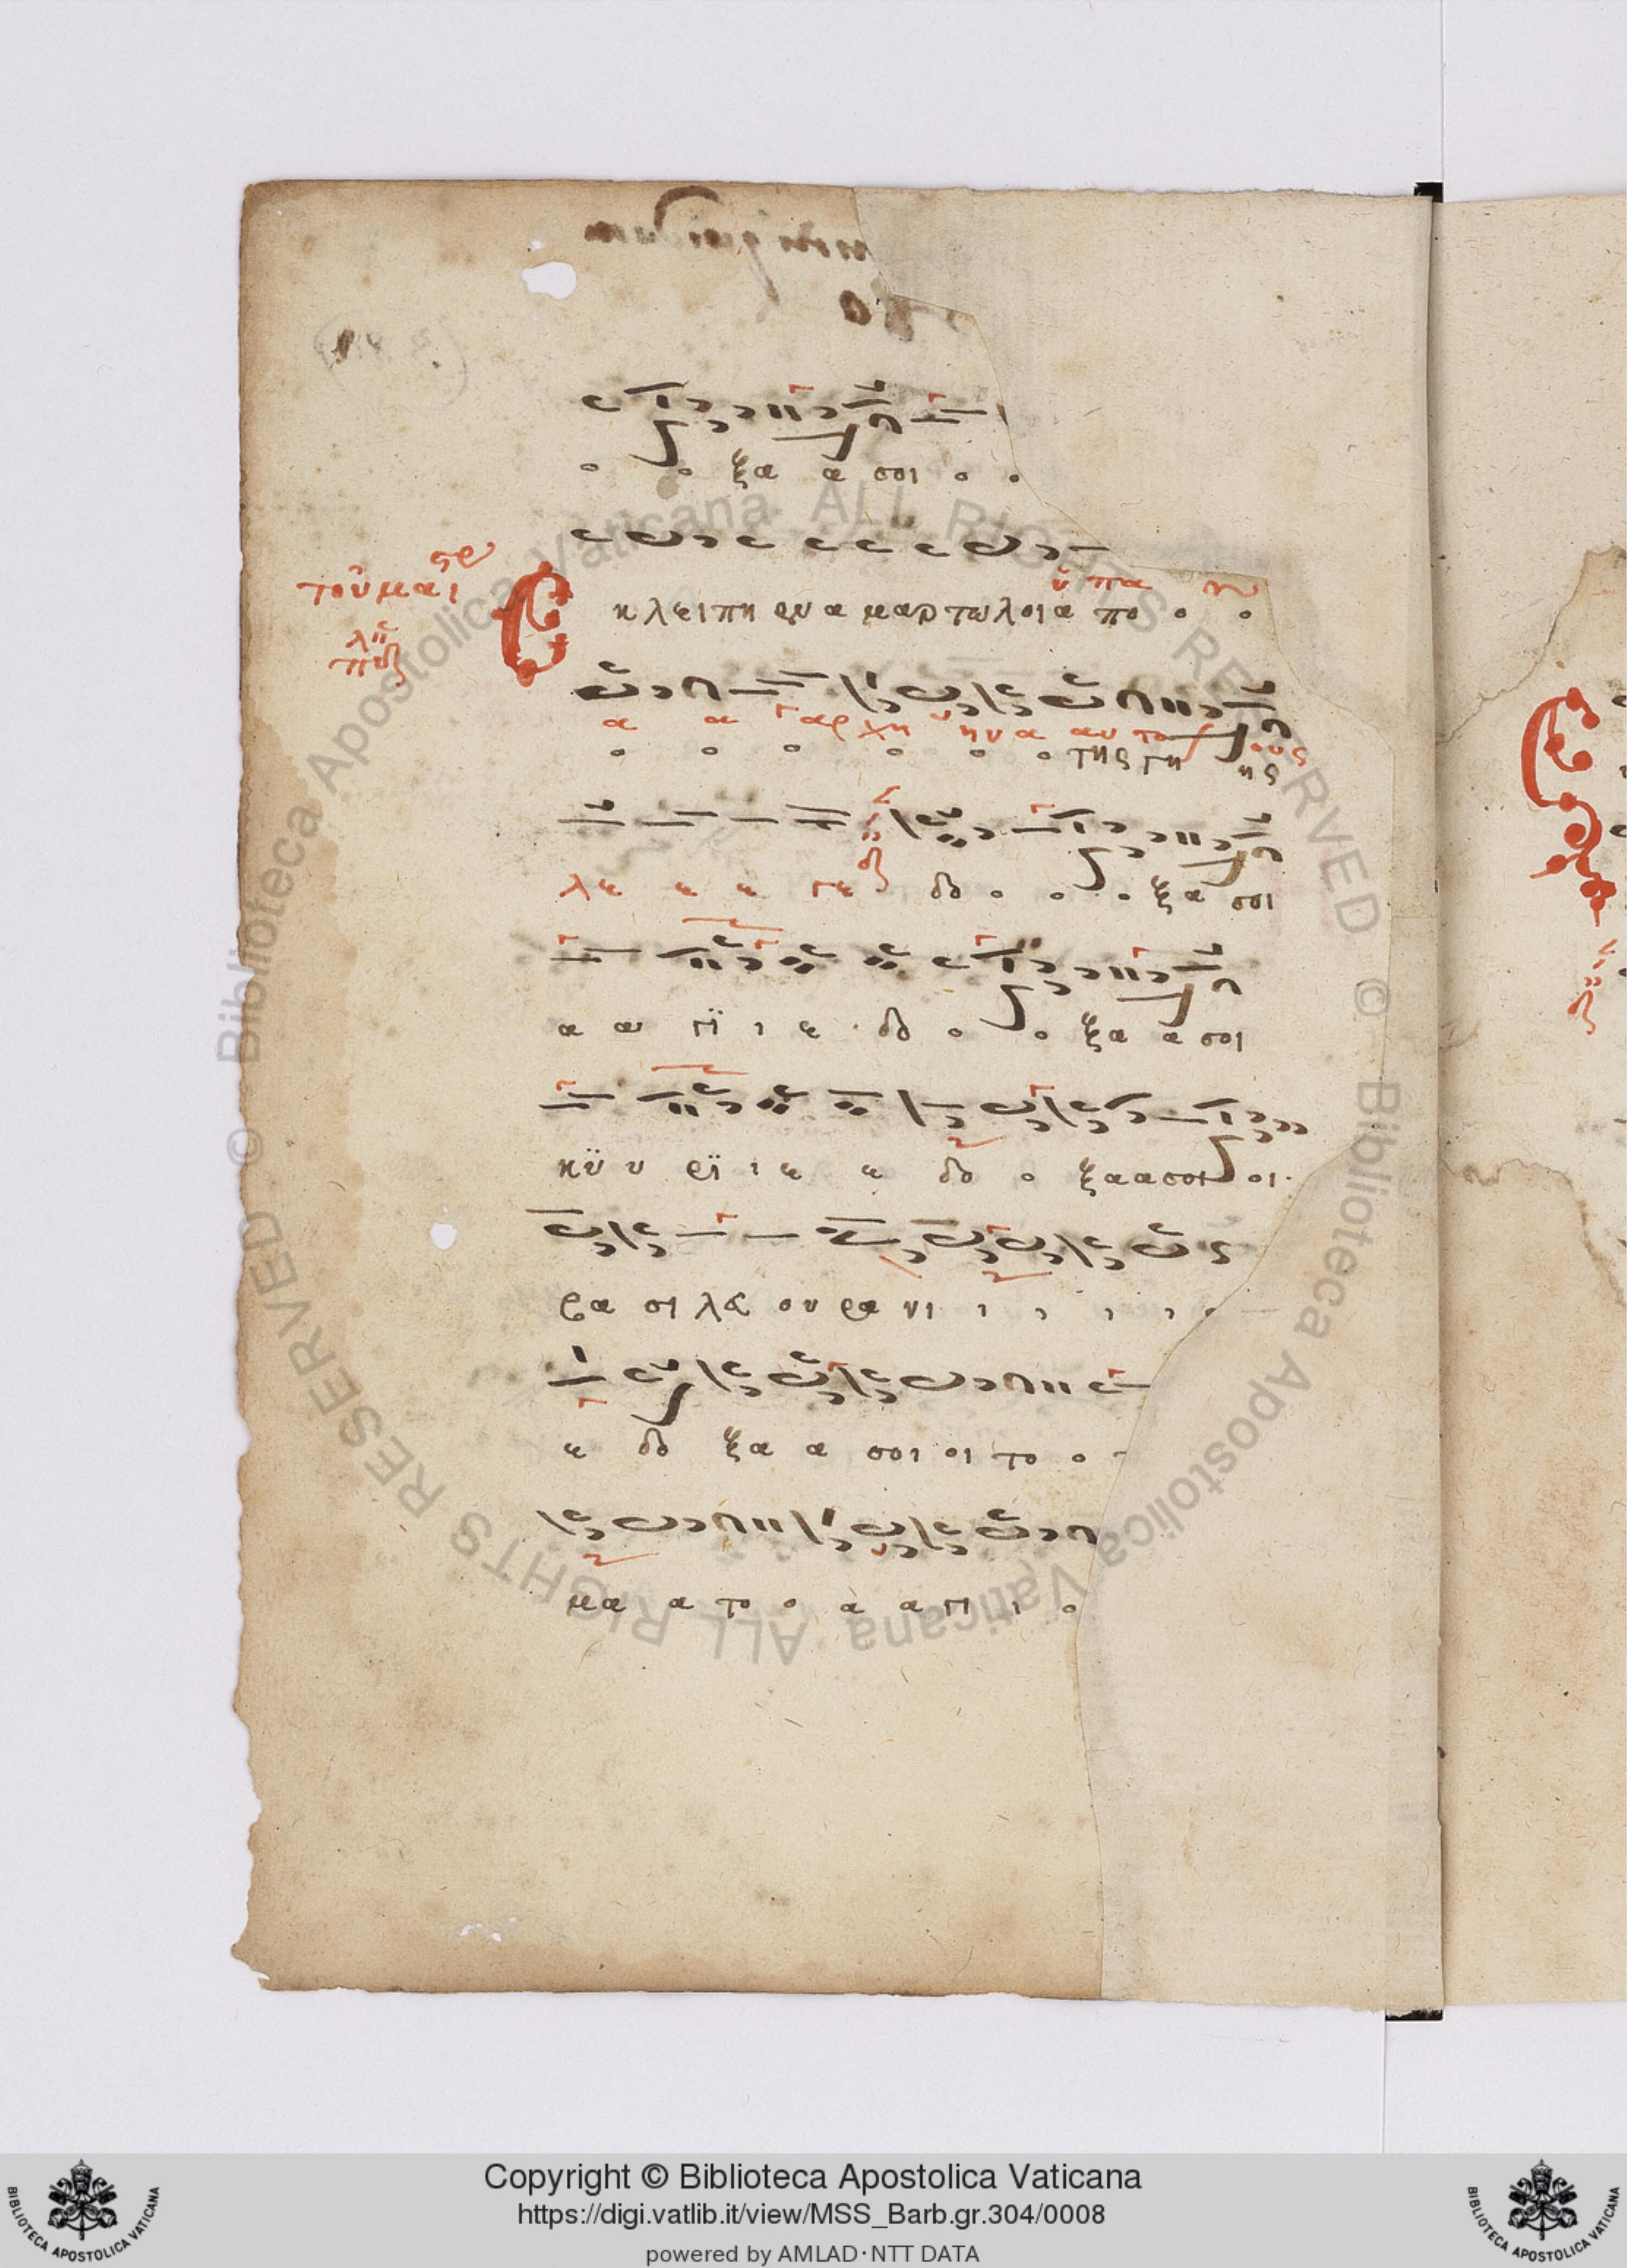 ο ο ξα α σοι ο ο
του μαι
Εκλειπηεν α μαρτωλοι α πο ο ο
ὕ πα
α α γαρχη ηνα αυτο ους
ο ο ο ο ο ο της γη ης
λε ε ε γε δο ο ο ο ξα σοι
α α γϊ ι ε δο ο ο ξα α σοι
κϋ υ ρϊ ι ε ε δο ο ξα α α σοι οι
βα σι λευ ου ρα νι ι ι ι ι
ε δο ξα α α σοι οι το ο
μα α το ο α α γι ι ο
Copyright © Biblioteca Apostolica Vaticana
https://digi.vatlib.it/view/MSS_Barb.gr.304/0008
powered by AMLAD·NTT DATA
© Biblioteca Apostolica Vaticana ALL RIGHTS RESERVED © Biblioteca Apostolica Vaticana ALL RIGHTS RESERVED
BIBLIOTECA APOSTOLICA VATICANA
BIBLIOTECA APOSTOLICA VATICANA